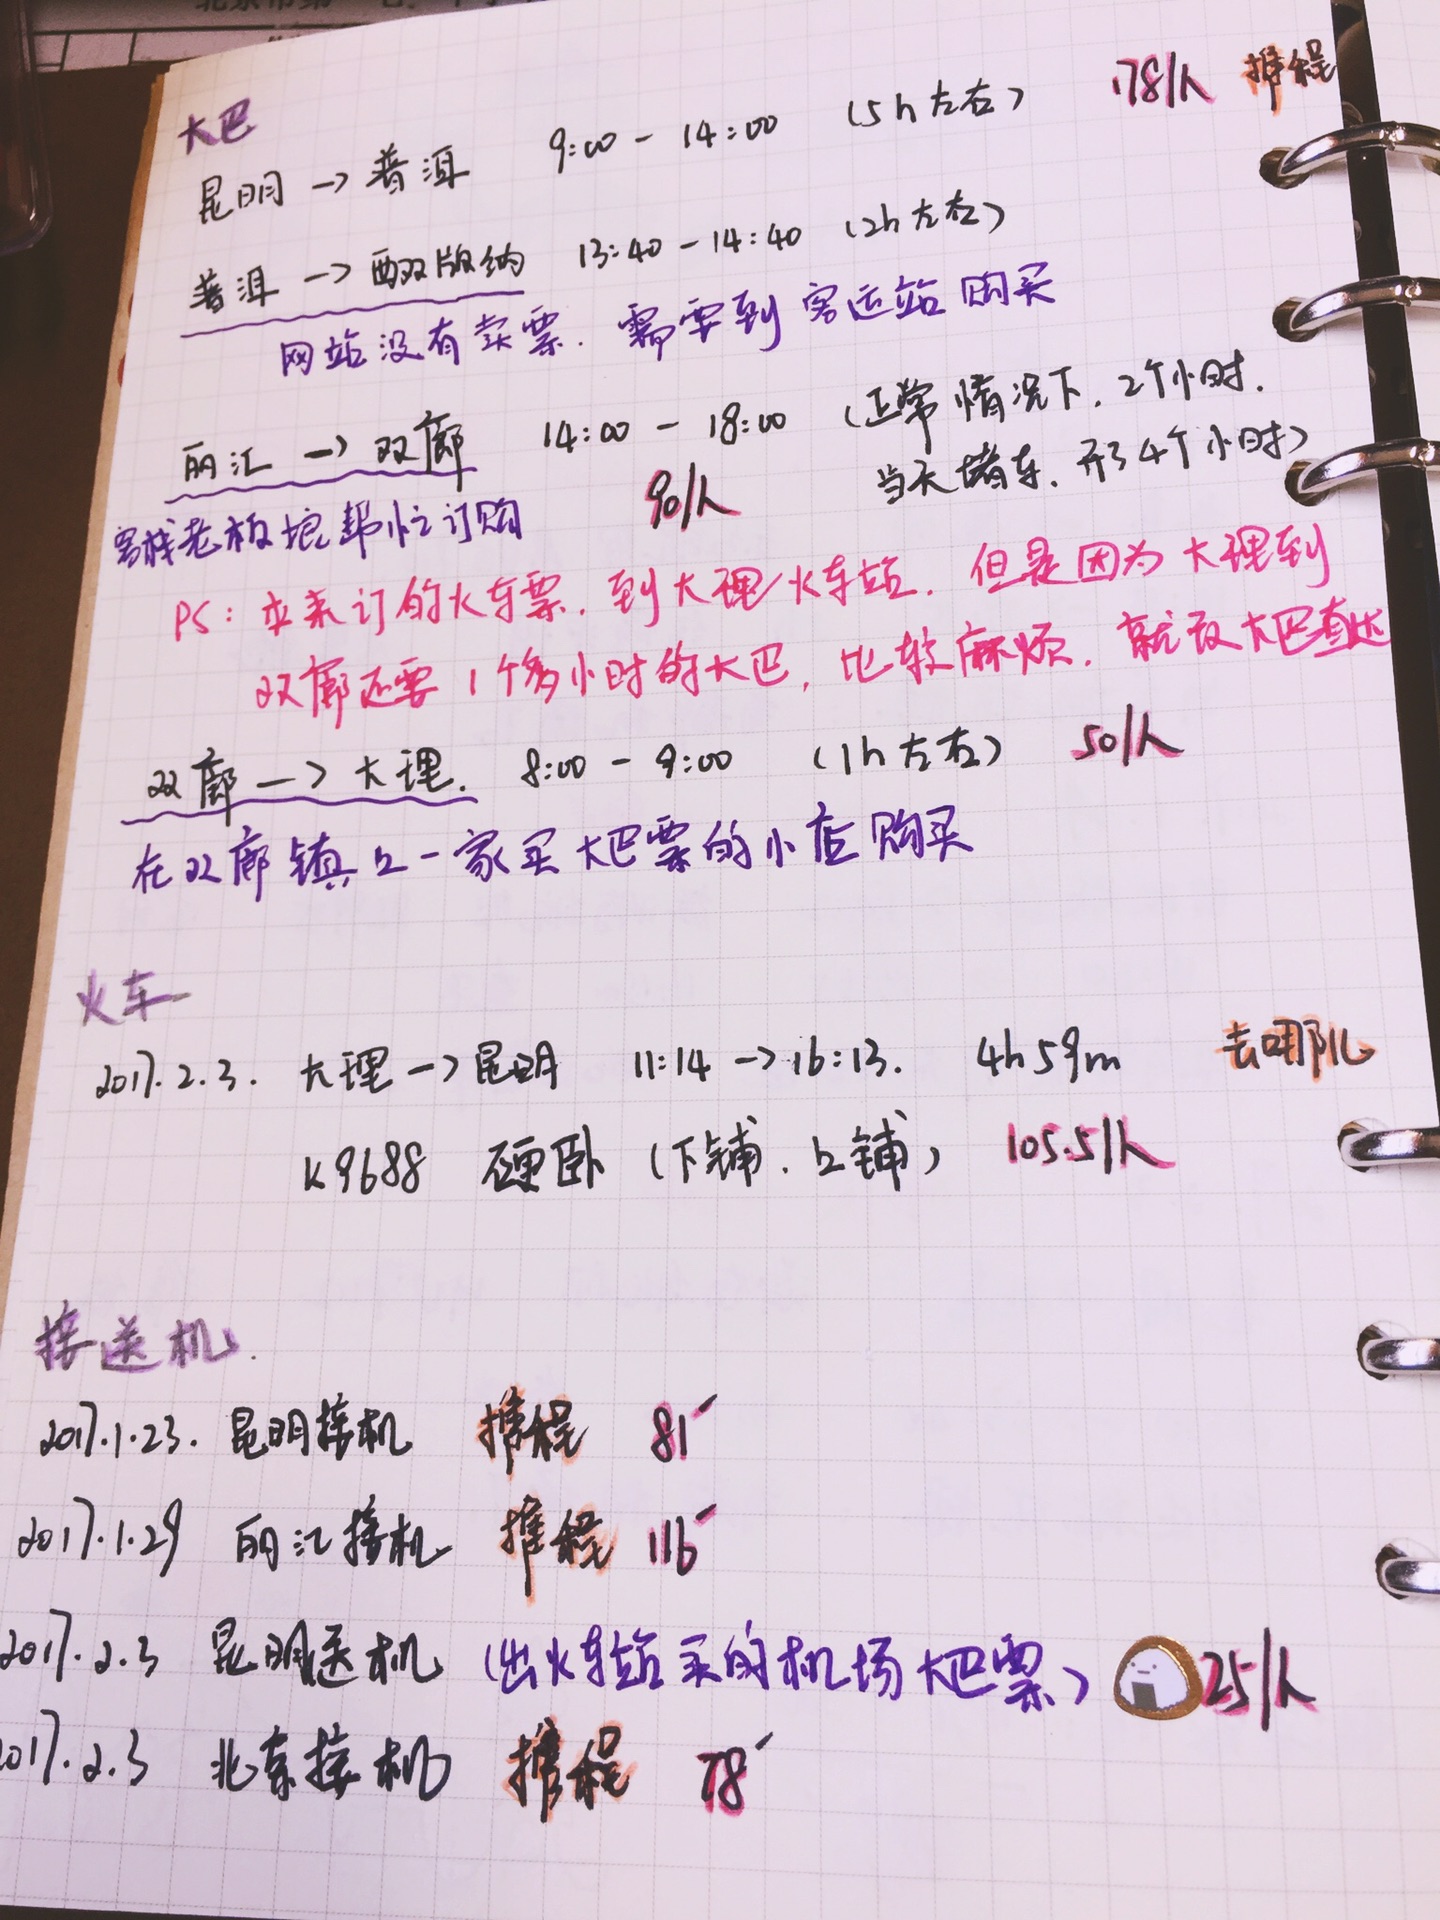 大巴
昆明 → 普洱 9:00 - 14:00 (5h左右) 178/人 携程
普洱 → 西双版纳 13:40 - 14:40 (2h左右)
网站没有卖票. 需要到客运站购买
丽江 → 双廊 14:00 - 18:00 (正常情况下. 2个小时.
当天堵车. 开了4个小时)
客栈老板娘帮忙订购 90/人
PS: 本来订的火车票. 到大理火车站. 但是因为大理到
双廊还要1个多小时的大巴, 比较麻烦. 就改大巴直达
双廊 → 大理. 8:00 - 9:00 (1h左右) 50/人
在双廊镇上一家买大巴票的小店购买
火车
2017.2.3. 大理 → 昆明 11:14 → 16:13. 4h59m 去哪儿
K9688 硬卧 (下铺. 上铺) 105.5/人
接送机.
2017.1.23. 昆明接机 携程 81
2017.1.29 丽江接机 携程 116
2017.2.3 昆明送机 (出火车站买的机场大巴票) 25/人
2017.2.3 北京接机 携程 78